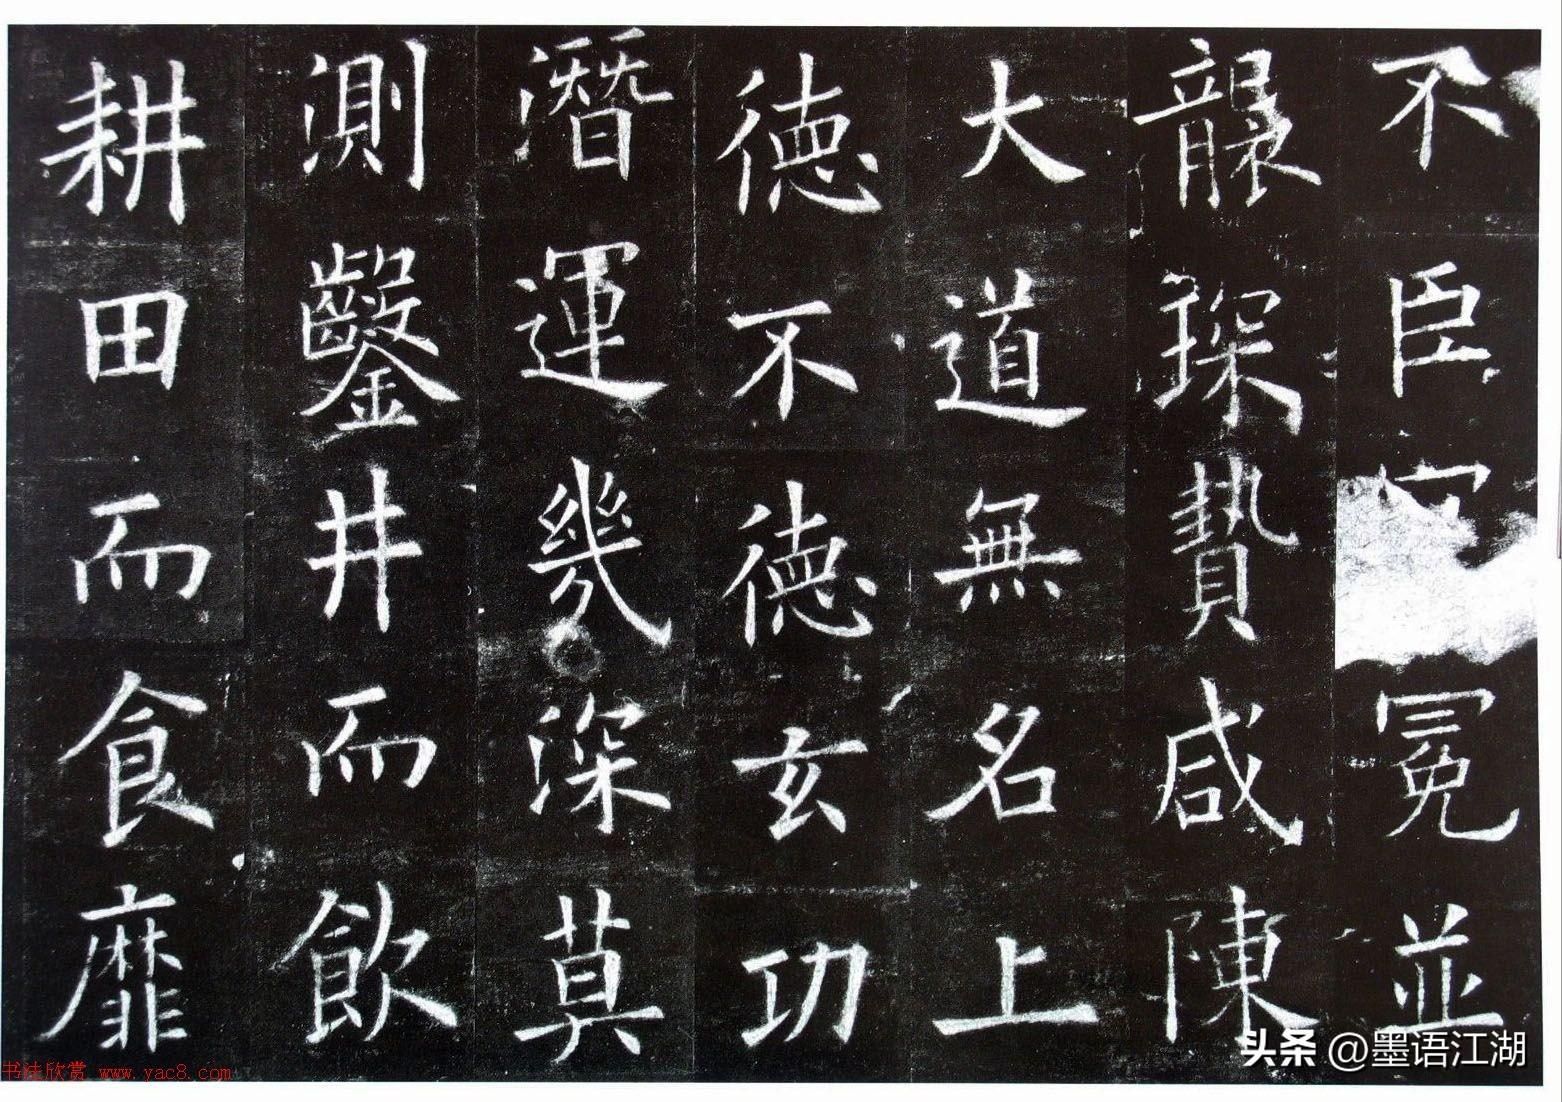 不臣冠冕並
襲琛贄咸陳
大道無名上
德不德玄功
潛運幾深莫
測鑿井而飲
耕田而食靡
头条 @墨语江湖
书法欣赏 www.yac8.com